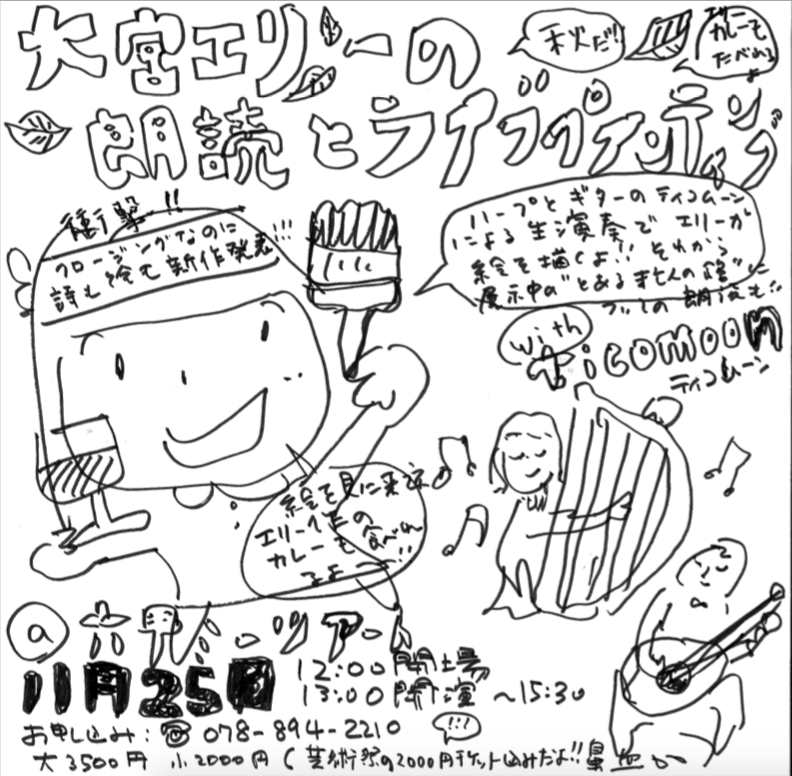 大宮エリーの
秋だ!!
カレーも
たべれる
よ
朗読とライブペインティング
衝撃!!
クロージングなのに
詩も絵も新作発表!!!
ハープとギターのティコムーン
による生演奏で エリーが
絵を描くよ!! それから
展示中の"とある まち人の
の朗読も!!
with
ticomoon
ティコムーン
絵を見に来て
エリー作の
カレーも食べれ
るよー!!
@六甲ミーツアート
11月25日
12:00 開場
13:00 開演 〜15:30
お申し込み:☎078-894-2210
!!!
大3500円 小2000円 (芸術祭の2000円チケット込みだよ!!